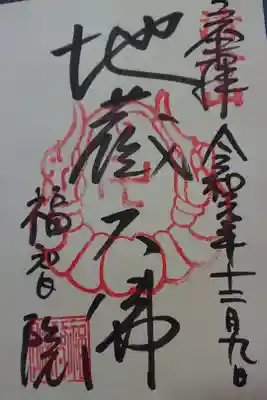 奉拝
令和元年十二月九日
地蔵大佛
福智院